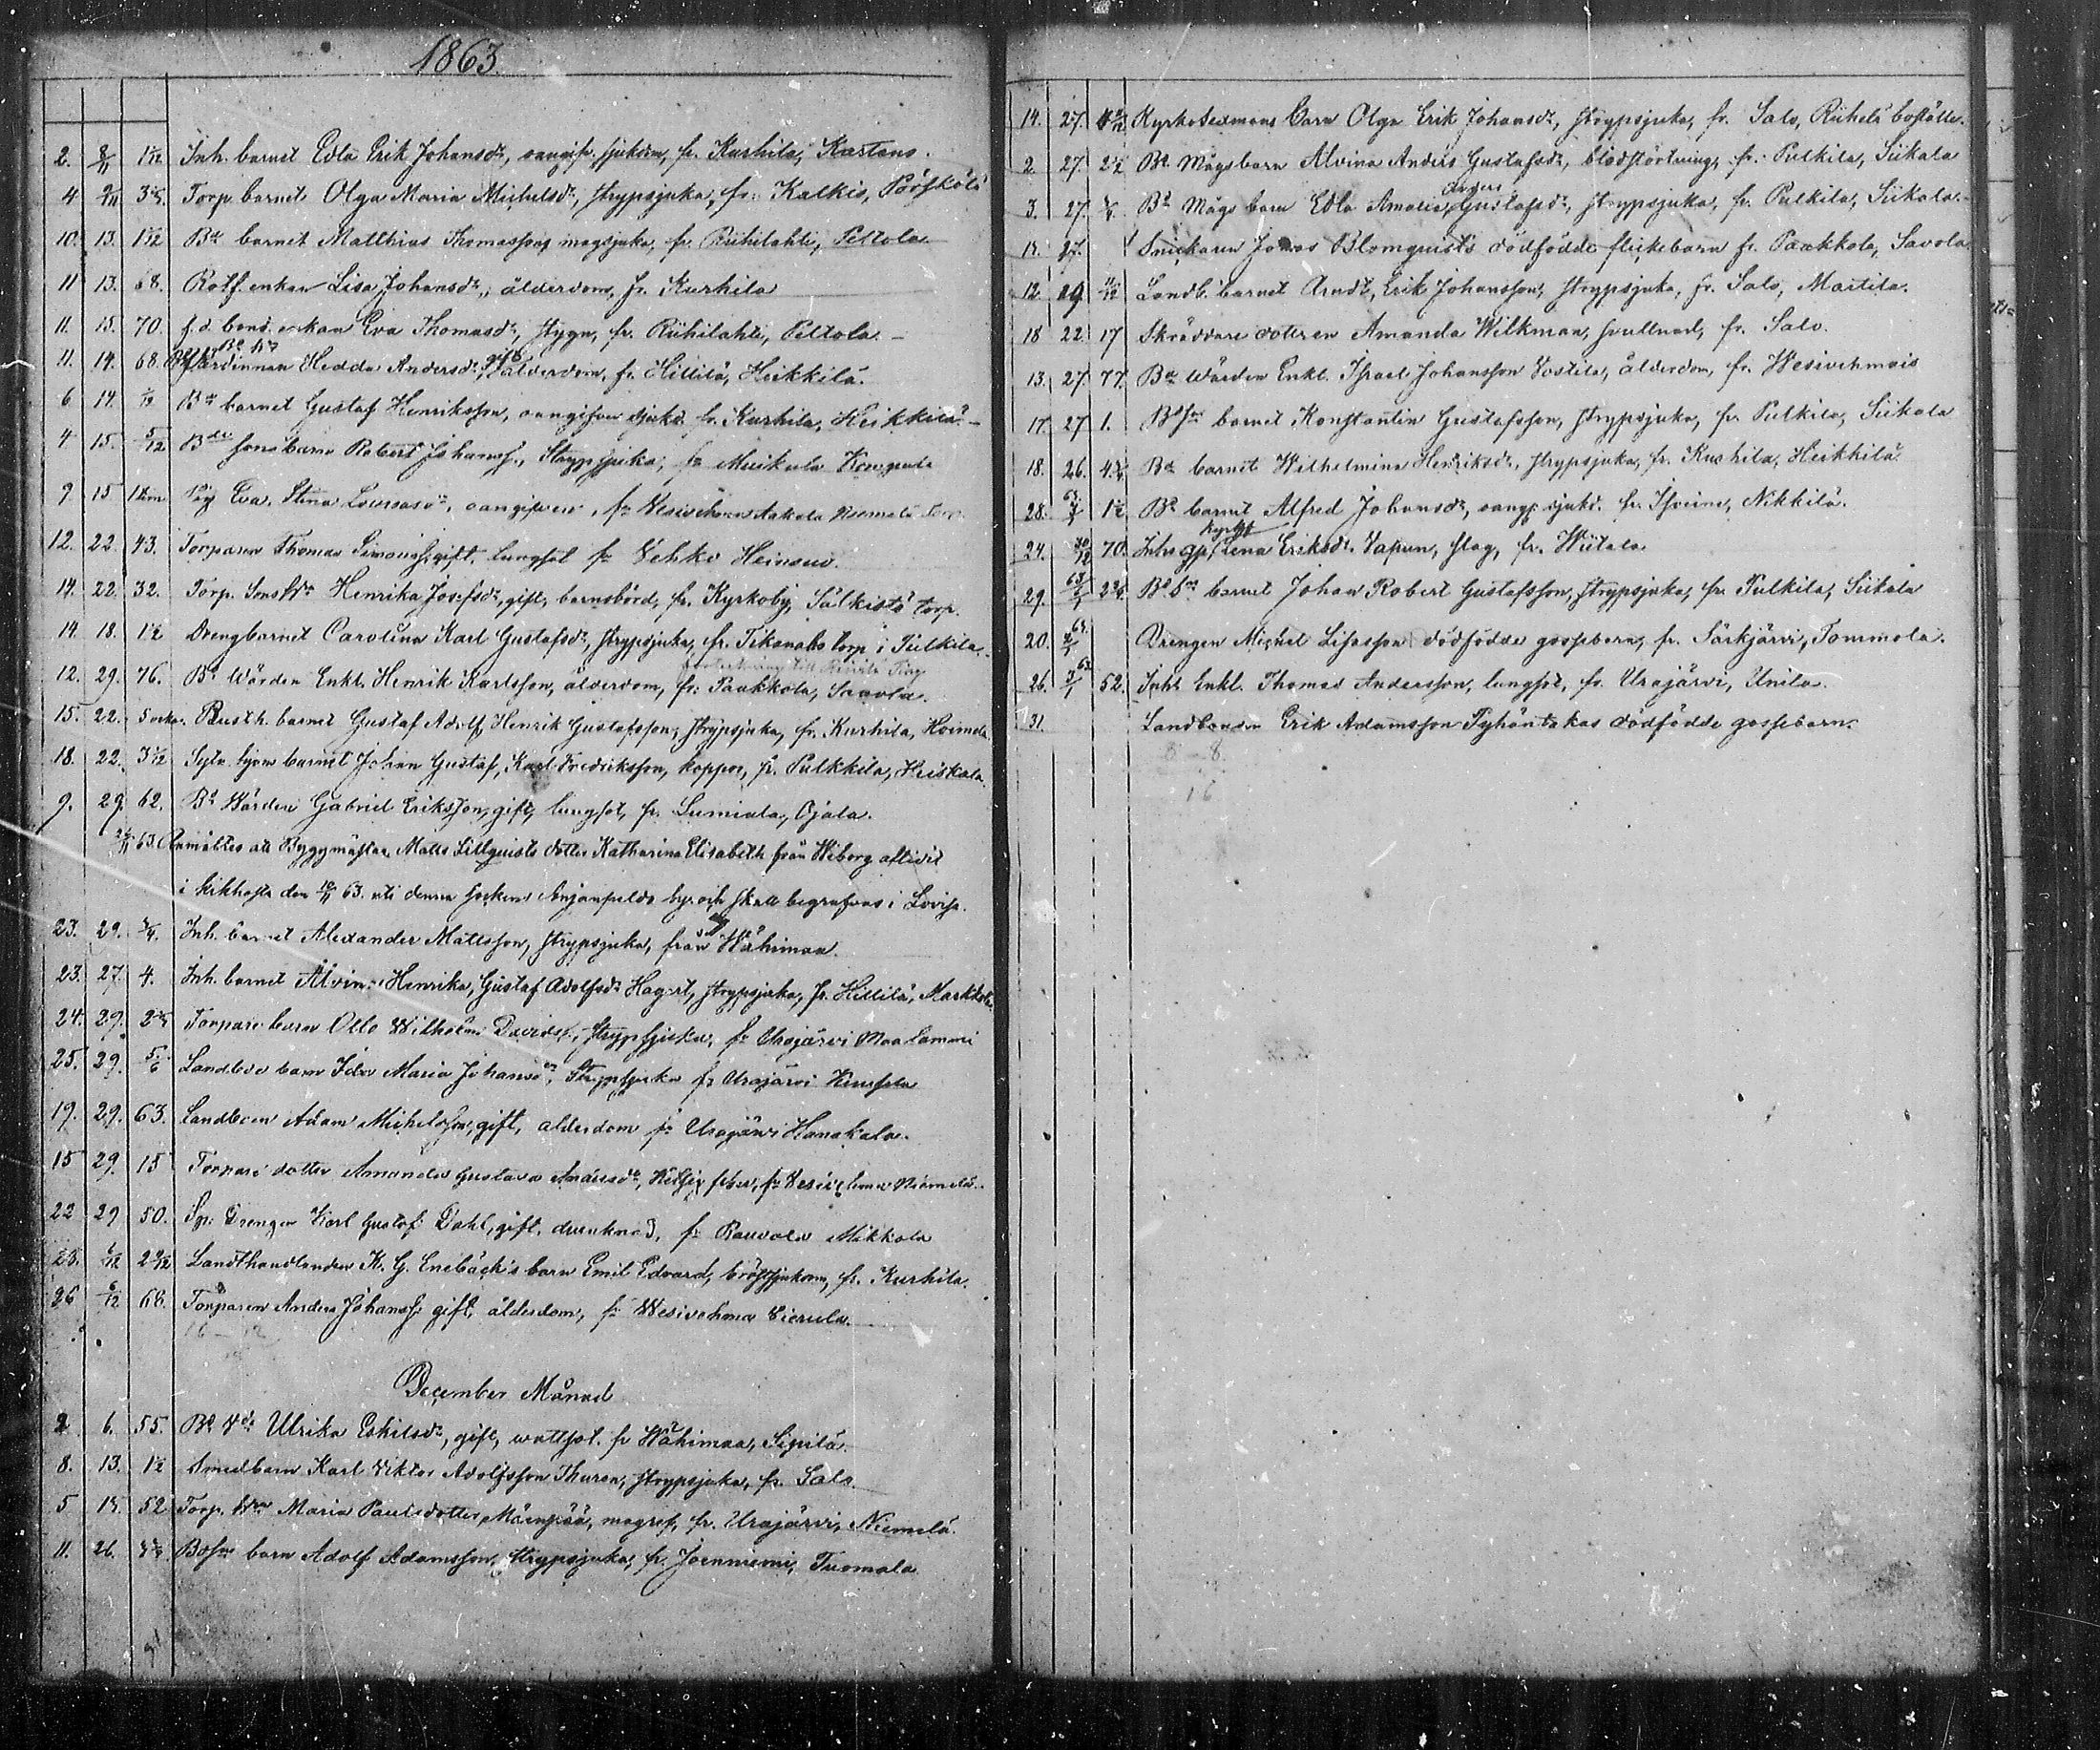 1863.
2. 8/11 1 1/12 Inh. barnet Edla Erik Johansdr, oangifv. sjukdom, fr. Kurhila, Kartano.
4 9/11 Torp. barnet Olga Maria Michelsdr, strypsjuka, fr. Kalkis,
10. 13. 1 1/12 Bd barnet Matthias Thomasson magsjuka, fr. Riihilahti, Peltola
11 13. 68. Rotf. enkan Lisa Johansdr, ålderdom, fr. Kurhila
11. 15. 70. f.d. bond. enkan Eva Thomasdr, stygn, fr. Riihilahti, Peltola. -
11. 14. 68. Wärdinnan Hedda Andersdr, gift ålderdom, fr. Hillilä, Heikkilä.
6 14. Bd barnet Gustaf Henriksson, oangifven sjukd. fr. Kurhila, Heikkilä. -
4 15. 5/12 Bde sonsbarn Robert Johanss., Strypsjuka, fr
9 15 Eva Stina, oangifven, fr Vesivehmaa Torp.
12. 22. 43. Torparen Thomas Simonss. gift. lungsot fr Vehko Heinsuo.
14. 22. 32. Torp. Sonhdr Henrika Josefsdr, gift, barnsbörd, fr. Kyrkoby, Sälkistö torp.
14. 18. 1 1/2 Drengbarnet Carolina Karl Gustafsdr, strypsjuka, fr. torp i Pulkila.
12. 29. 76. Bd Wärden Enkl. Henrik Karlsson, ålderdom, fr. Paakkola, Saavola.
15. 22. 5 veckor. Rusth. barnet Gustaf Adolf Henrik Gustafsson, strypsjuka, fr. Kurhila, Hoimela
18. 22. 3 1/12 Sytn. hjon barnet Johan Gustaf, Karl Fredriksson, koppor, fr. Pulkkila, Heiskala
9. 29. 62. Bd Wärden Gabriel Eriksson, gift, lungsot, fr. Lumiala, Ojala.
63. Anmältes att Byggmästar Matts Lillquists dotter Katharina Elisabeth från Wiborg aflidit
i kikhosta den 63. uti denna Socken by och skall begrafvas i Lovisa.
23. 29. 3/4. Inh. barnet Alexander Mattsson, strypsjuka, från Wähimaa.
23. 27. 4. Inh. barnet Alvina Henrika, Gustaf Adolfsdr Hagert, strypsjuka, fr. Hillilä, Markkola
24. 29. Torpare barn Otto Wilhelm Davids., strypsjuka, fr Urajärvi Maalammi
25. 29. 5/6 Landbo barn Ida Maria Johansdr, Strypsjuka fr Urajärvi
19. 29. 63. Landboen Adam Michelsson, gift, ålderdom fr Urajärvi Hanakala.
15 29. 15 Torpare dotter Amanda Gustava Andersdr, feber, fr Vesivehmaa Niemelä.
22 29 50. Drengen Karl Gustaf Dahl, gift. drunknad, fr Rauvola Mikkola
23. 6/12 2 9/12 Landthandlanden K. G. Enebäck's barn Emil Edvard, bröstsjukdom, fr. Kurhila.
26 6/12 68. Torparen Anders Johanss. gift, ålderdom, fr Wesivehmaa Vierula.
16 - 12
December Månad
2 6. 55. Bd Vde Ulrika Eskilsdr, gift, wattsot. fr Wähimaa, Sipilä.
8. 13. 1 1/2 Smedbarn Karl Viktor Adolfsson Thuren, strypsjuka, fr. Salo.
5 52 Torp. Maria Paulsdotter Mäenpää, magref, fr. Urajärvi, Niemelä.
11. 26. barn Adolf Adamsson, strypsjuka, fr. Joenniemi, Tuomala
14. 27. Kyrkosexmans barn Olga Erik Johansdr, strypsjuka, fr. Salo, Riihelä boställe.
2. 27. 2 1/2 Bd Mågsbarn Alvina Anders Gustafsdr, blodstörtning, fr. Pulkila, Siikala
3. 27. 3/4. Bd Mågs barn Edla Amalia, Anders Gustafsdr, strypsjuka, fr. Pulkila, Siikala. -
27. Snickaren Jonas Blomquist's dödfödde flickebarn fr. Paakkola, Savola
12. 29 11/12 Landb. barnet Arndt, Erik Johansson, strypsjuka, fr. Salo, Martila.
18 22. 17 Skräddare dottren Amanda Wilkman, svullnad, fr. Salo.
13. 27. 77. Bd Wärden Enkl. Israel Johansson Vostila, ålderdom, fr. Wesivehmais
17. 27. 1. barnet Konstantin Gustafsson, strypsjuka, fr. Pulkila, Siikala
18. 26. Bd barnet Wilhelmina Henriksdr, strypsjuka, fr. Kurhila, Heikkilä
28. 1 1/2 Bd barnet Alfred Johansdr, oangf. sjukd. fr. Isoeine, Nikkilä.
24. 30/12 70. Inhs gp Lena Eriksdr Vapun, slag, fr. Wiitala
29. barnet Johan Robert Gustafsson, strypsjuka, fr. Pulkila, Siikala
20. Drengen Michel Lisasson dödfödde gossebarn, fr. Särkjärvi, Tommola.
26. 52. Inhs Enkl. Thomas Andersson, lungsot, fr. Urajärvi, Unila.
31. Landbonden Erik Adamsson Pyhäntakas dödfödde gossebarn.
8 - 8.
16